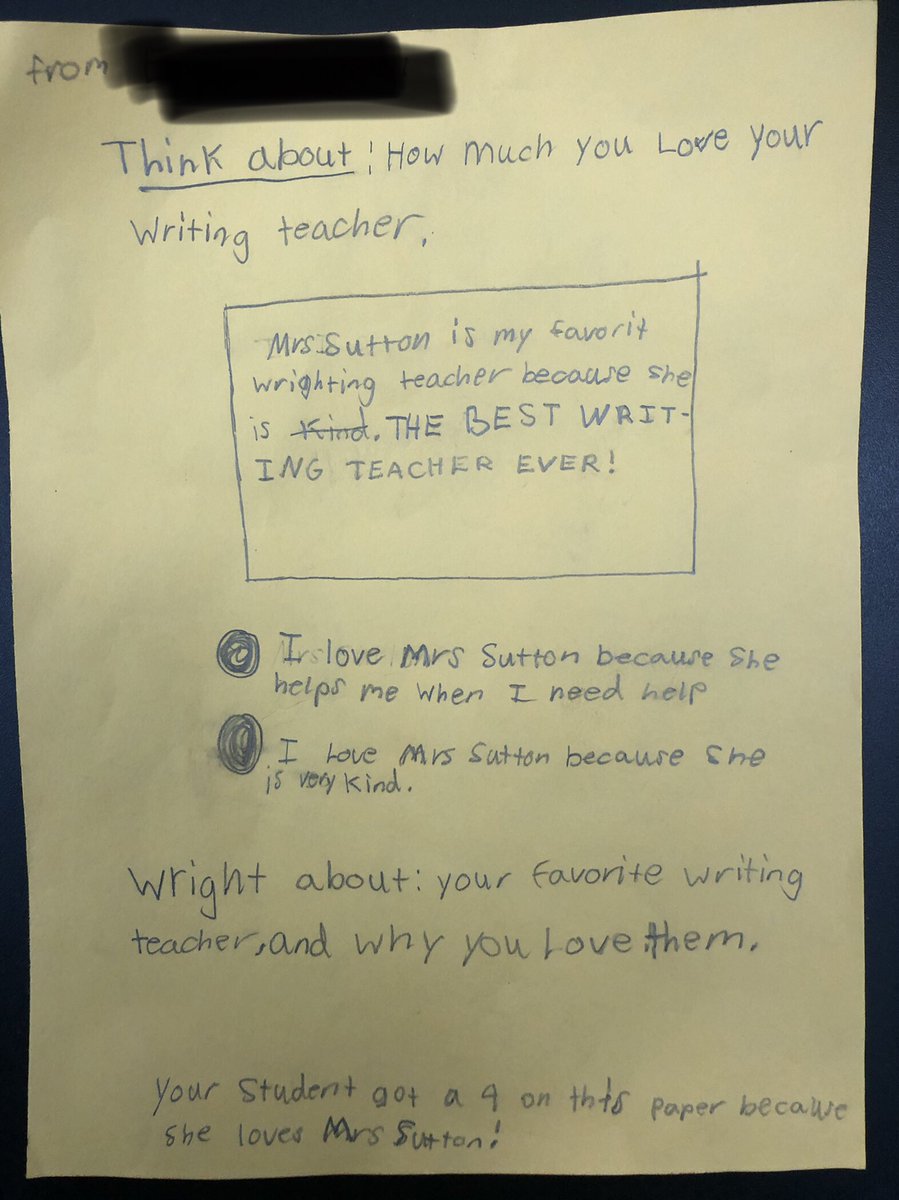 from
Think about: How much you Love your
writing teacher.
Mrs Sutton is my favorit
wrighting teacher because she
is kind. THE BEST WRIT-
ING TEACHER EVER!
I love Mrs Sutton because she
helps me when I need help
I Love Mrs Sutton because she
is very kind.
Wright about: your favorite writing
teacher, and why you Love them.
Your Student got a 9 on this paper because
she loves Mrs Sutton!